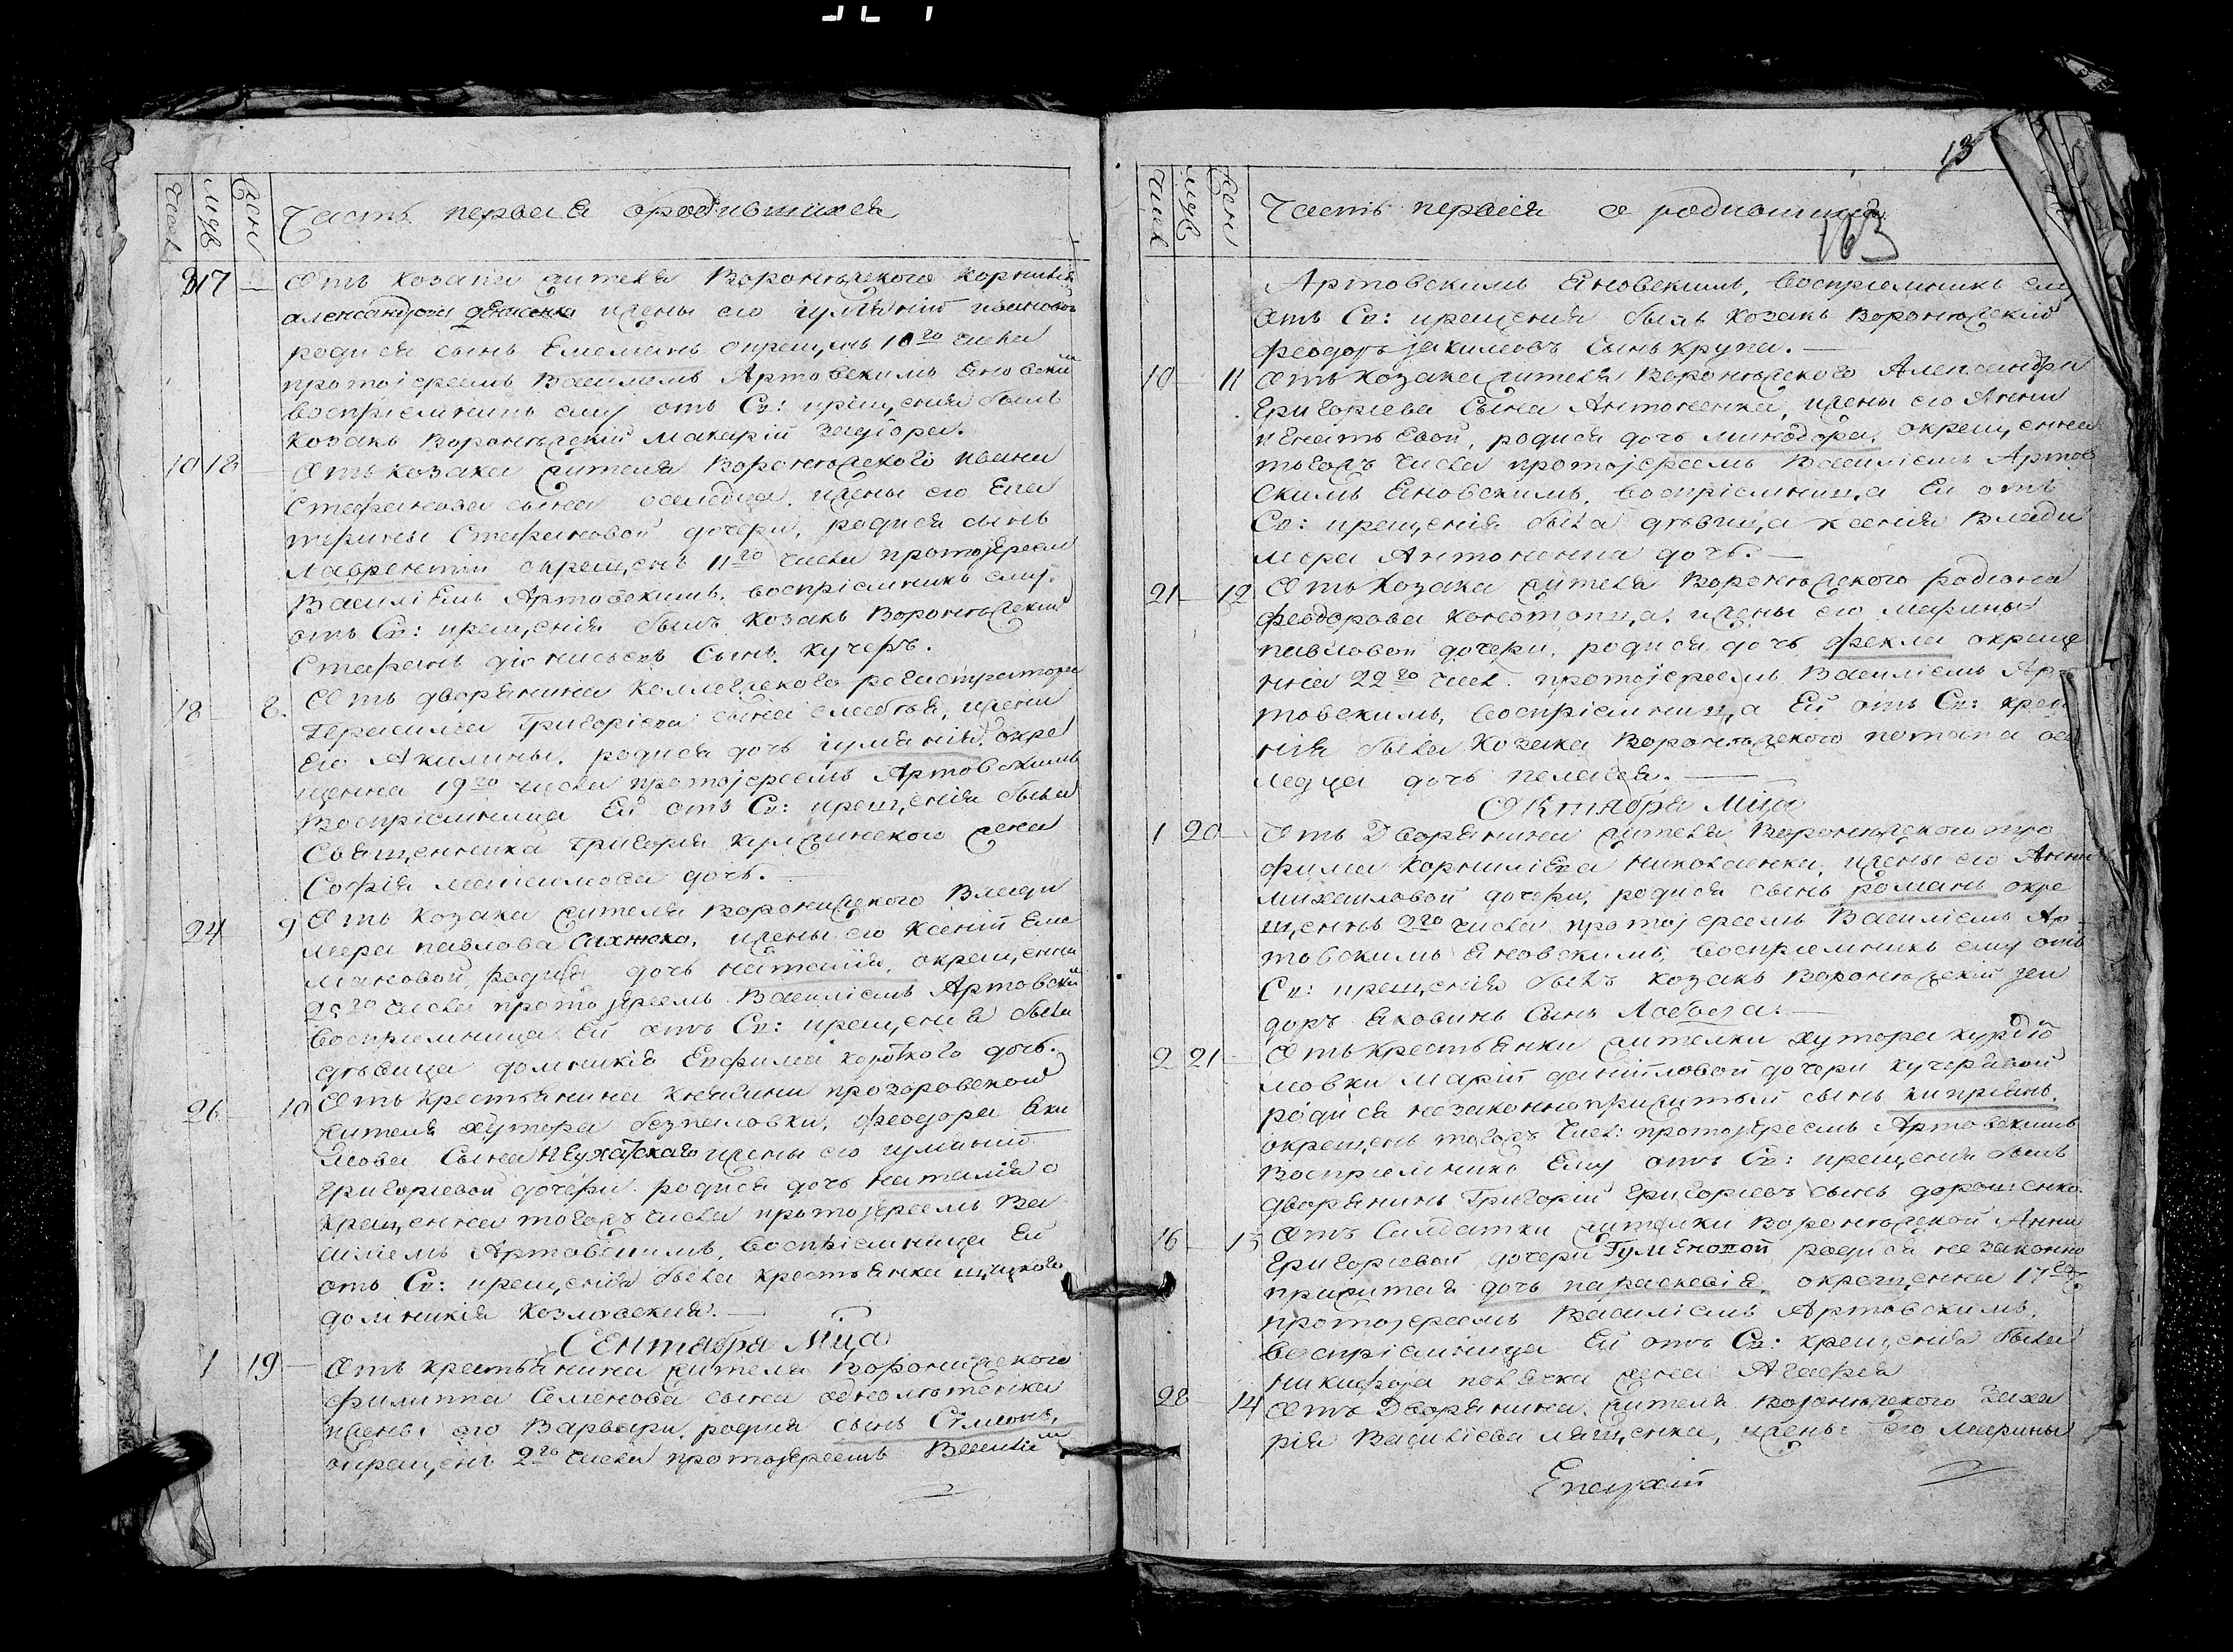 Числ Муж Жен
Часть первая о родившихся
9 17 — Отъ козака жителя Воронѣжского Корнилія
александрова денисенка ижены его гулїянїи ивановой
родися сынъ Емеліянъ окрещенъ 10го числа
протоіереемъ Василіемъ Артовскимъ Яновским
воспріемникъ ему отъ Св: крещенія былъ
козакъ воронѣжскій макарій задгора.
10 18 — Отъ козака жителя Воронѣжского ивана
Стефанова сына оселедца, ижены его Ека
терины Стефановой дочери, родися сынъ
Лаврентій окрещенъ 11го числа протоіереем
Василіемъ Артовскимъ, воспріемникъ ему
отъ Св: крещенія былъ козакъ Воронѣжский
Стефанъ діонисьевъ Сынъ кучеръ.
18 — 8. Отъ дворянина коллежского регистратора
Герасима Григоріева сына, ижени
его Акилины, родися дочъ гулянія, окре
щенна 19го числа протоіереемъ Артовскимъ
Воспріемница Ей отъ Св: крещенія была
Священника григорія кулжинского жена
Софія максимова дочъ.
24 9 Отъ козака жителя воронижского Влади
мера павлова Сахнюка, ижены его ксенїи Еме
ляновой, родися дочъ наталія, окрещенна
25го числа протоіереемъ Василіемъ Артовским
Воспріемница Ей отъ Св: крещенія была
дѣвица домникія Евфимія короткого дочъ.
26 — 10 Отъ крестьянина княгини прозоровской
жителя хутора безпаловки, феодора Яки
мова Сына ижены его гуляніи
григоріевой дочери родися дочъ наталія о
крещенна тогожъ числа протоіереемъ Ва
силіемъ Артовскимъ, воспріемница Ей
отъ Св: крещенія была крестьянка
домникія козловская. —
Сентабря Мца
1 19 — Отъ крестьянина жителя воронижского
филиппа Семенова сына
ижены его Варвари, родися сынъ Симеонъ,
окрещенъ 2го числа протоіереемъ Василіем
13
Числ Муж Жен
Часть первая о родившихся
163
Артовскимъ Яновскимъ, воспріемникъ ему
Отъ Св: крещенія былъ козакъ воронѣжский
феодоръ іакимовъ Сынъ крупа. —
10 — 11 Отъ козака жителя воронѣжского Александра
Григоріева Сына Антоненка, ижены его Анни
игнатьевой, родися дочъ минодора, окрещенна
тогожъ числа протоіереемъ Василіемъ Артов
скимъ Яновскимъ, воспріемница Ей отъ
Св: крещенія была дѣвица ксенія Влади
мера Антоненка дочъ. —
21 — 12 Отъ козака жителя воронѣжского родіона
феодорова конотопца, ижены его марины
павловой дочери, родися дочъ фекла окреще
нна 22го числ. протоіереемъ Василіемъ Ар
товскимъ, воспріемница Ей отъ Св: креще
нія была козака воронѣжского потапа осе
ледца дочъ пелагея. —
Октября Мца
1 20 — Отъ Дворянина жителя Воронѣжского тро
фима корниліева николаенка, ижены его Анни
михаиловой дочери, родися сынъ романъ окре
щенъ 2го числа протоіереемъ Василіемъ Ар
товскимъ Яновскимъ, воспріемникъ ему отъ
Св: крещенія былъ козакъ воронѣжский
доръ Яковинъ Сынъ Лобода. —
2 21 — Отъ крестьянки жителки хутора курдю
мовки маріи данїиловой дочери кучерявой
родися незаконноприжитый сынъ кипріянъ,
окрещенъ тогожъ числ: протоіереемъ Артовскимъ
воспріемникъ Ему отъ Св: крещенія былъ
дворянинъ Григорій Григоріевъ сынъ дорошенко.
16 — 13 Отъ Салдатки жителки воронѣжской Анни
григоріевой дочери родися незаконно
прижитая дочъ параскевія, окрещенна 17го
протоіереемъ Василіемъ Артовскимъ.
воспріемница Ей отъ Св: крещенія была
никифора жена Агафія
28 14 Отъ Дворянина жителя воронѣжского Заха
рія Василіева, ижены Его марины